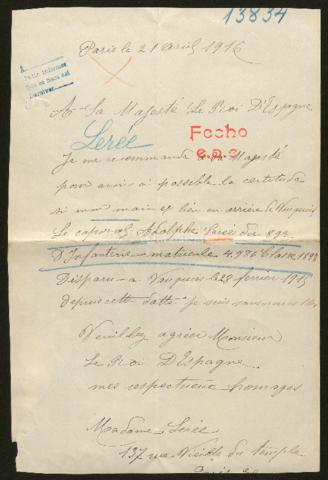 13834
Paris le 21 avril 1916
A Sa Majesté Le Roi D'Espagne
Lerée
Fecho
Je me recommande Majesté
pour avoir si possible la certitude
si mon mari est bien en arrière Vauquois
Le caporal Adolphe Lerée du 89e
D'Infanterie matricule 4.986 Classe
Disparu a Vauquois le 28 fevrier 1915
depuis cette datte je suis sans
Veuillez agréer Monsieur
Le Roi D'Espagne
mes respectueux homages
Madame Lerée
137 rue Vieille du temple
Paris